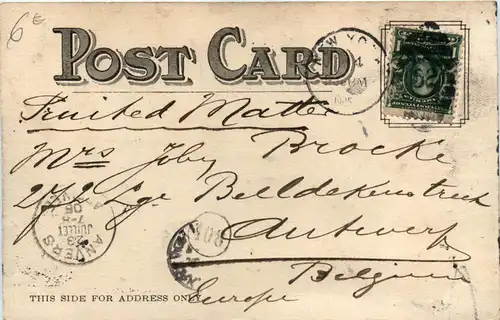 6€
POST CARD
NEW YO
Printed Matter
Mrs Joby Brocke
2/2 Lge Belldekenstreet
Antwerp
Belgium
Europe
ANVERS
23
JUILLET
7-8
05
108
THIS SIDE FOR ADDRESS ONLY